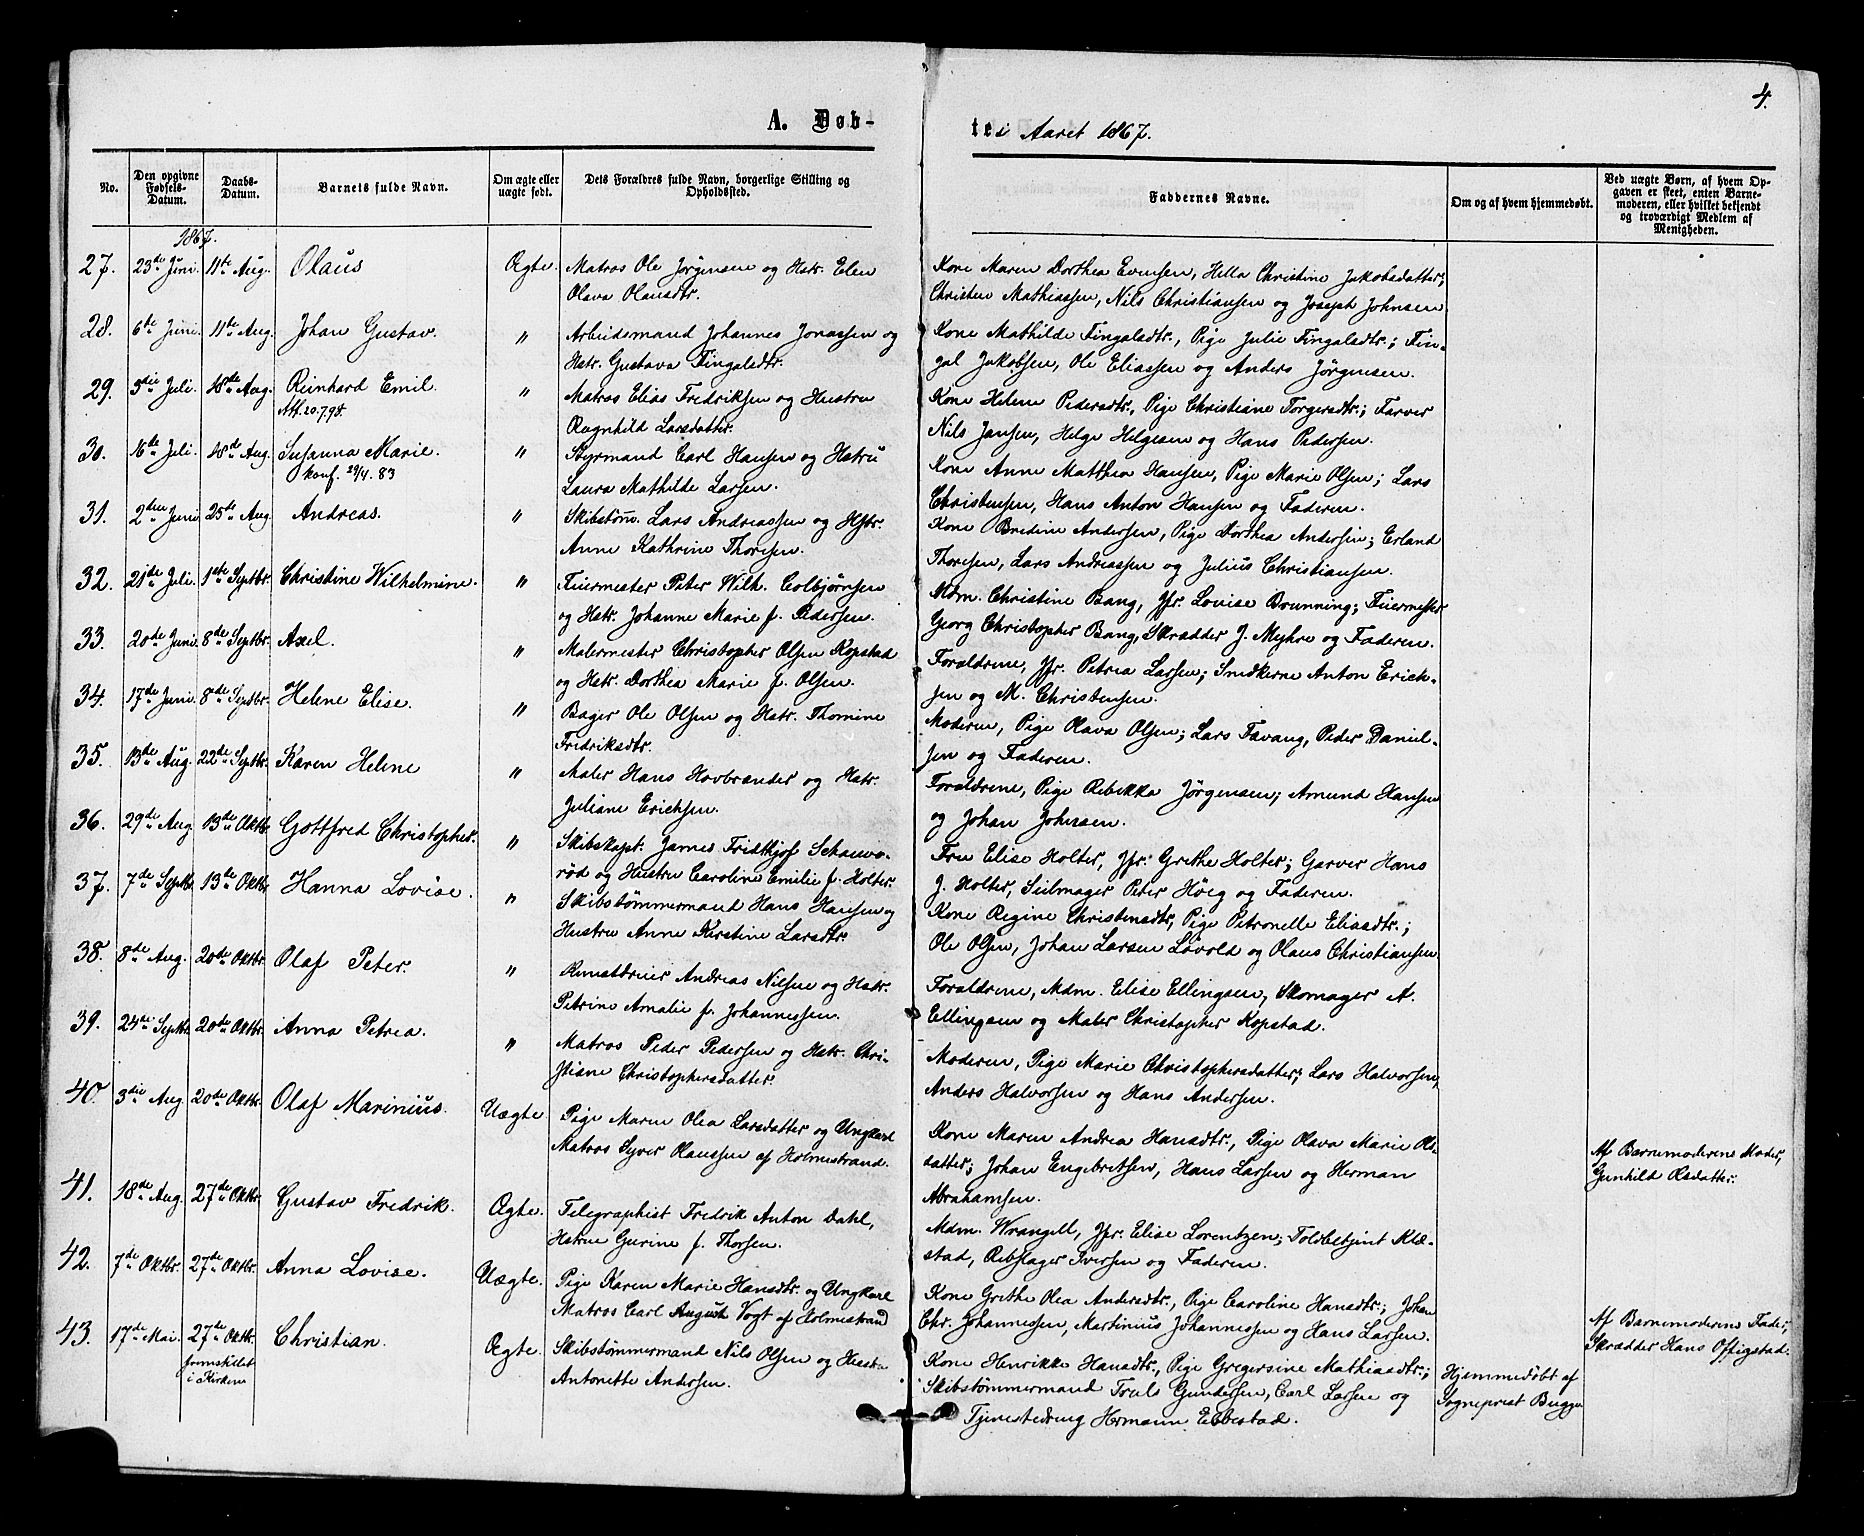 4.
A. Døb-
te i Aaret 1867.
No.
Den opgivne Fødsels-Datum.
Daabs-Datum.
Barnets fulde Navn.
Om ægte eller uægte født.
Dets Forældres fulde Navn, borgerlige Stilling og Opholdssted.
Faddernes Navne.
Om og af hvem hjemmedøbt.
Ved uægte Børn, af hvem Opgaven er skeet, enten Barnemoderen, eller hvilket bekjendt og troværdigt Medlem af Menigheden.
1867.
27. 23de Juni. 11te Aug. Olaus Ægte. Matros Ole Jørgensen og Hstr. Elen
Olava Olausdtr.
Kone Maren Dorthea Evensen, Hella Christine Jakobsdatter;
Christen Mathiassen, Nils Christiansen og Joseph Johnsen
28. 6te Juni. 11te Aug. Johan Gustav. " Arbeidsmand Johannes Jonassen og
Hstr. Gustava Fingalsdtr.
Kone Mathilde Fingalsdtr., Pige Julie Fingalsdtr.; Fin-
gal Jakobsen, Ole Eliassen og Anders Jörgensen.
29. 5te Juli. 18de Aug. Reinhard Emil. " Matros Elias Fredriksen og Hustru
Att. 20.7.98.
Ragnhild Larsdatter.
Kone Helene Pedersdtr., Pige Christiane Torgersdtr.; Farver
Nils Jansen, Helge Helgesen og Hans Pedersen.
30. 16de Juli. 18de Aug. Susanna Marie. " Styrmand Carl Hansen og Hstru
konf. 29/4. 83
Laura Mathilde Larsen.
Kone Anne Matthea Hansen, Pige Marie Olsen; Lars
Christensen, Hans Anton Hansen og Faderen.
31. 2den Juni 25de Aug. Andreas. " Skibstøm. Lars Andreassen og Hstr.
Anne Kathrine Thoresen.
Kone Bredine Andersen, Pige Dorthea Andersen; Erland
Thoresen, Lars Andreassen og Julius Christiansen.
32. 21de Juli. 1ste Septbr. Christine Wilhelmine. " Feiermester Peter Wilh. Colbjørnsen
og Hstr. Johanne Marie f. Pedersen.
Mdm. Christine Bang, Jfr. Louise Brunning; Feiermester
Georg Christopher Bang, Skrædder J. Myhre og Faderen.
33. 20de Juni. 8de Septbr. Axel. " Malermester Christopher Olsen Kopstad
og Hstr. Dorthea Marie f. Olsen.
Forældrene, Jfr. Petrea Larsen; Smdkerne Anton Erich-
sen og M. Christensen.
34. 17de Juni. 8de Septbr. Helene Elise. " Bager Ole Olsen og Hstr. Thomine
Fredriksdtr.
Moderen, Pige Olava Olsen; Lars Favang, Peder Daniel-
sen og Faderen.
35. 13de Aug. 22de Septbr. Karen Helene " Maler Hans Hovbrander og Hstr.
Juliane Erichsen.
Forældrene, Pige Rebikka Jörgensen; Amund Hansen
og Johan Johnsen.
36. 29de Aug. 13de Oktbr. Gottfred Christopher. " Skibskapt. James Fridthjof Schauvo-
rød og Hustru Caroline Emilie f. Holter.
Fru Elise Holter, Jfr. Grethe Holter; Garver Hans
J. Holter, Seilmager Peter Höeg og Faderen.
37. 7de Septbr. 13de Oktbr. Hanna Lovise. " Skibstømmermand Hans Hansen og
Hustru Anne Kirstine Larsdtr.
Kone Regine Christensdtr., Pige Petronelle Eliasdtr.;
Ole Olsen, Johan Larsen Lövold og Olaus Christiansen
38. 8de Aug. 20de Oktbr. Olaf Peter. " Andreas Nilsen og Hstr.
Petrine Amalie f. Johannessen.
Forældrene, Mdm. Elise Ellingsen, Skomager A.
Ellingsen og Maler Christopher Kopstad.
39. 24de Septbr. 20de Oktbr. Anna Petrea. " Matros Peder Pedersen og Hstr. Chri-
stiane Christophersdatter.
Moderen, Pige Marie Christophersdatter; Lars Halvorsen,
Anders Halvorsen og Hans Andersen.
40. 3die Aug. 20de Oktbr. Olaf Marinius. Uægte. Pige Maren Olea Larsdatter og Ungkarl
Matros Syver Olaussen af Holmestrand.
Kone Maren Andrea Hansdtr., Pige Olava Marie Ols-
datter; Johan Engebretsen, Hans Larsen og Herman
Abrahamsen.
Af Barnemoderens Moder,
Gunhild Olsdatter.
41. 18de Aug. 27de Oktbr. Gustav Fredrik. Ægte. Telegraphist Fredrik Anton Dahl,
Hstrue Gurine f. Thorsen.
Mdm. Wrangell, Jfr. Elise Lorentzen; Toldbetjent Klæ-
stad, Rebslager Iversen og Faderen.
42. 7de Oktbr. 27de Oktbr. Anna Lovise. Uægte. Pige Karen Marie Hansdtr. og Ungkarl
Matros Carl August Vogt af Holmestrand
Kone Grethe Olea Andersdtr., Pige Caroline Hansdtr.; Johan
Chr. Johannessen, Martinius Johannessen og Hans Larsen.
Af Barnemoderens Fader,
Skrædder Hans Oftigstad.
43. 17de Mai. 27de Oktbr. Christian. Ægte. Skibstømmermand Nils Olsen og Hust.
fremstillet
i Kirken
Antonette Andersen.
Kone Henrikke Hansdtr., Pige Gregersine Mathiasdtr.;
Skibstømmermand Truls Gundersen, Carl Larsen og
Tjenestedreng Hermann Ebbestad.
Hjemmedöbt af
Sogneprest Bugge